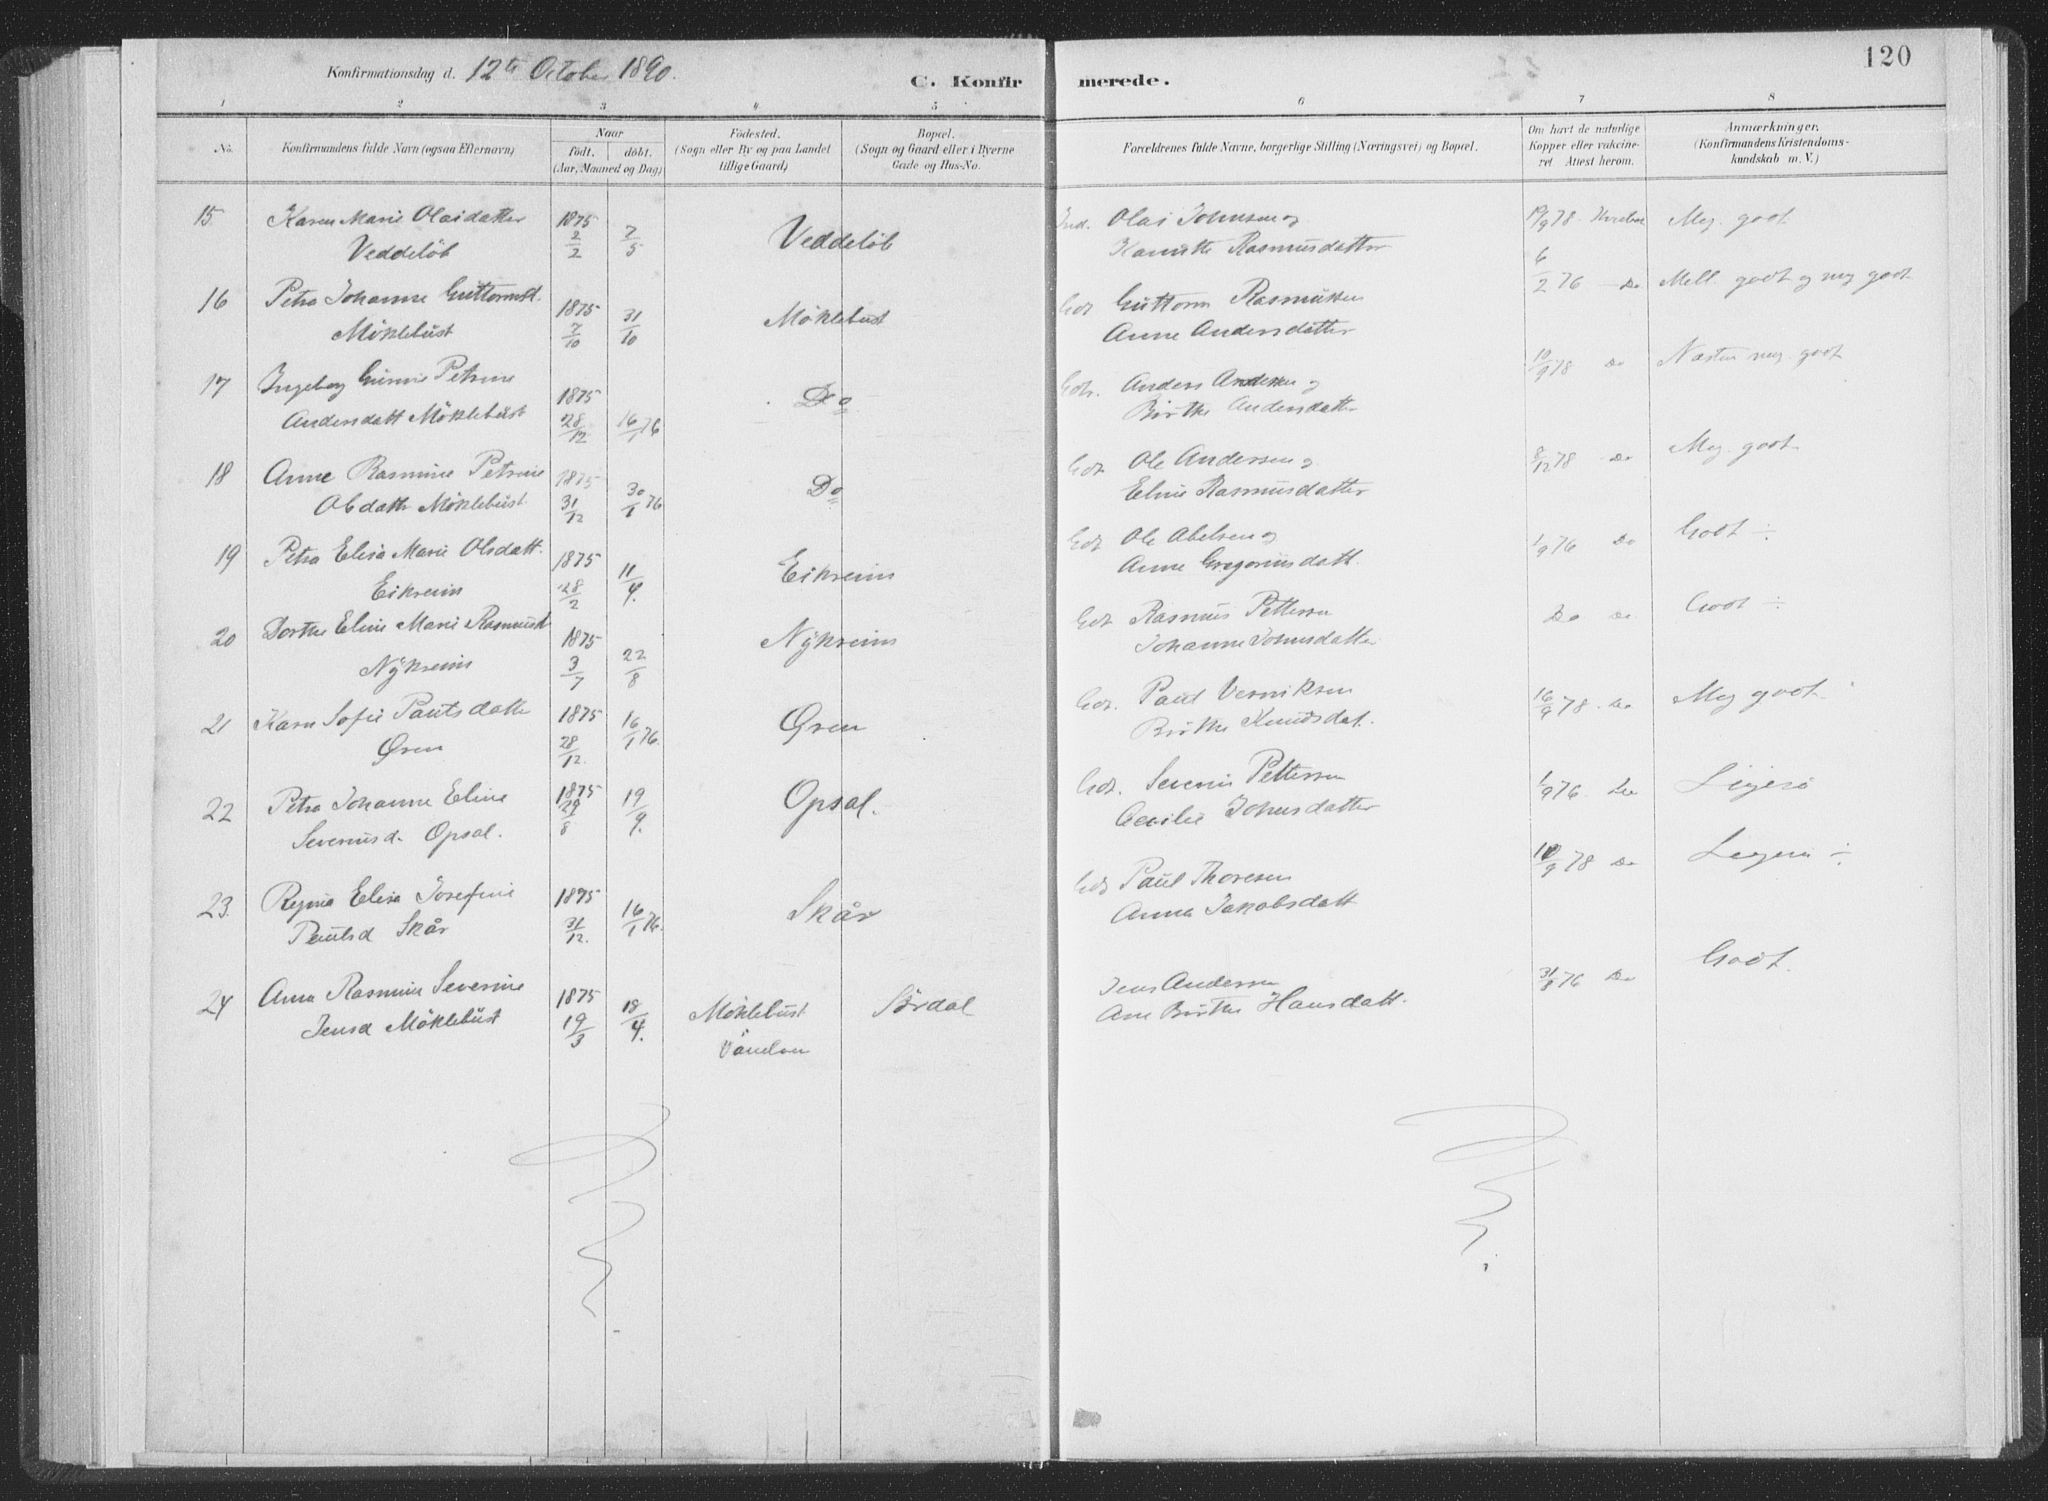 120
Konfirmationsdag d. 12te October 1890.
C. Konfirmerede.
1 2 3 4 5 6 7 8
No.
Konfirmandens fulde Navn (ogsaa Efternavn)
Naar
födt. döbt.
(Aar, Maaned og Dag)
Födested.
(Sogn eller By og paa Landet
tillige Gaard)
Bopæl.
(Sogn og Gaard eller i Byerne
Gade og Hus-No.
Forældrenes fulde Navne, borgerlige Stilling (Næringsvei) og Bopæl.
Om havt de naturlige
Kopper eller vakcine-
ret Attest herom.
Anmærkninger.
(Konfirmandens Kristendoms-
kundskab m. V.)
15 Karen Marie Olaidatter 1875 Ind. Olai Johnsen og 19/9 78 Meg. godt
Veddelöb 2/2 7/5 Veddelöb Rasmusdatter
16 Petra Johanne Guttormsd. 1875 Gdr Guttorm Rasmussen 6/2 76 - Do Mell. godt og meg godt
Möklebust 7/10 31/10 Möklebust Anne Andersdatter
17 Ingeborg Gurine Petrine 1875 Gdr. Anders Andersen og 10/9 78 Do Næsten meg. godt
Andersdatt Möklebust 28/12 16/1 76 Do Birthe Andersdatter
18 Anne Rasmine Petrine 1875 Gdr Ole Andersen og 8/12 78 Do Meg. godt
Olsdatt. Möklebust 31/12 30/1 76 Do Eline Rasmusdatter
19 Petra Elisa Marie Olsdatt. 1875 Gdr Ole Abelsen og 1/9 76 Do Godt ÷
Eikreim 28/2 11/4. Eikreim Anne Gregoriusdatt.
20 Dorthe Eline Marie Rasmusd. 1875 Gdr Rasmus Pettersen Do Do Godt ÷
Nÿkreim 3/7 22/8 Nÿkreim Johanne Johnsdatter
21 Karen Sofie Paulsdatter 1875 Gdr. Paul 16/9 78. Do Meg godt
Øren 28/12. 16/1 76. Øren Birthe Knudsdat.
22 Petra Johanne Eline 1875 Gdr. Severin Pettersen 1/9 76. Do Ligesö
Severinsd. Opsal. 29/8 19/9. Opsal. Cecilie Johnsdatter
23. Regina Elisa Josefine 1875 Gdr Paul Thoresen 10/9 78 Do ÷
Paulsd Skår 31/12. 16/1 76. Skår Anna Jakobsdatt
24 Anna Rasmine Severine 1875 Jens Andersen 31/8 76 Do Godt.
Jensd Möklebust 19/3 18/4. Möklebust Sördal Ane Birthe Hansdatt.